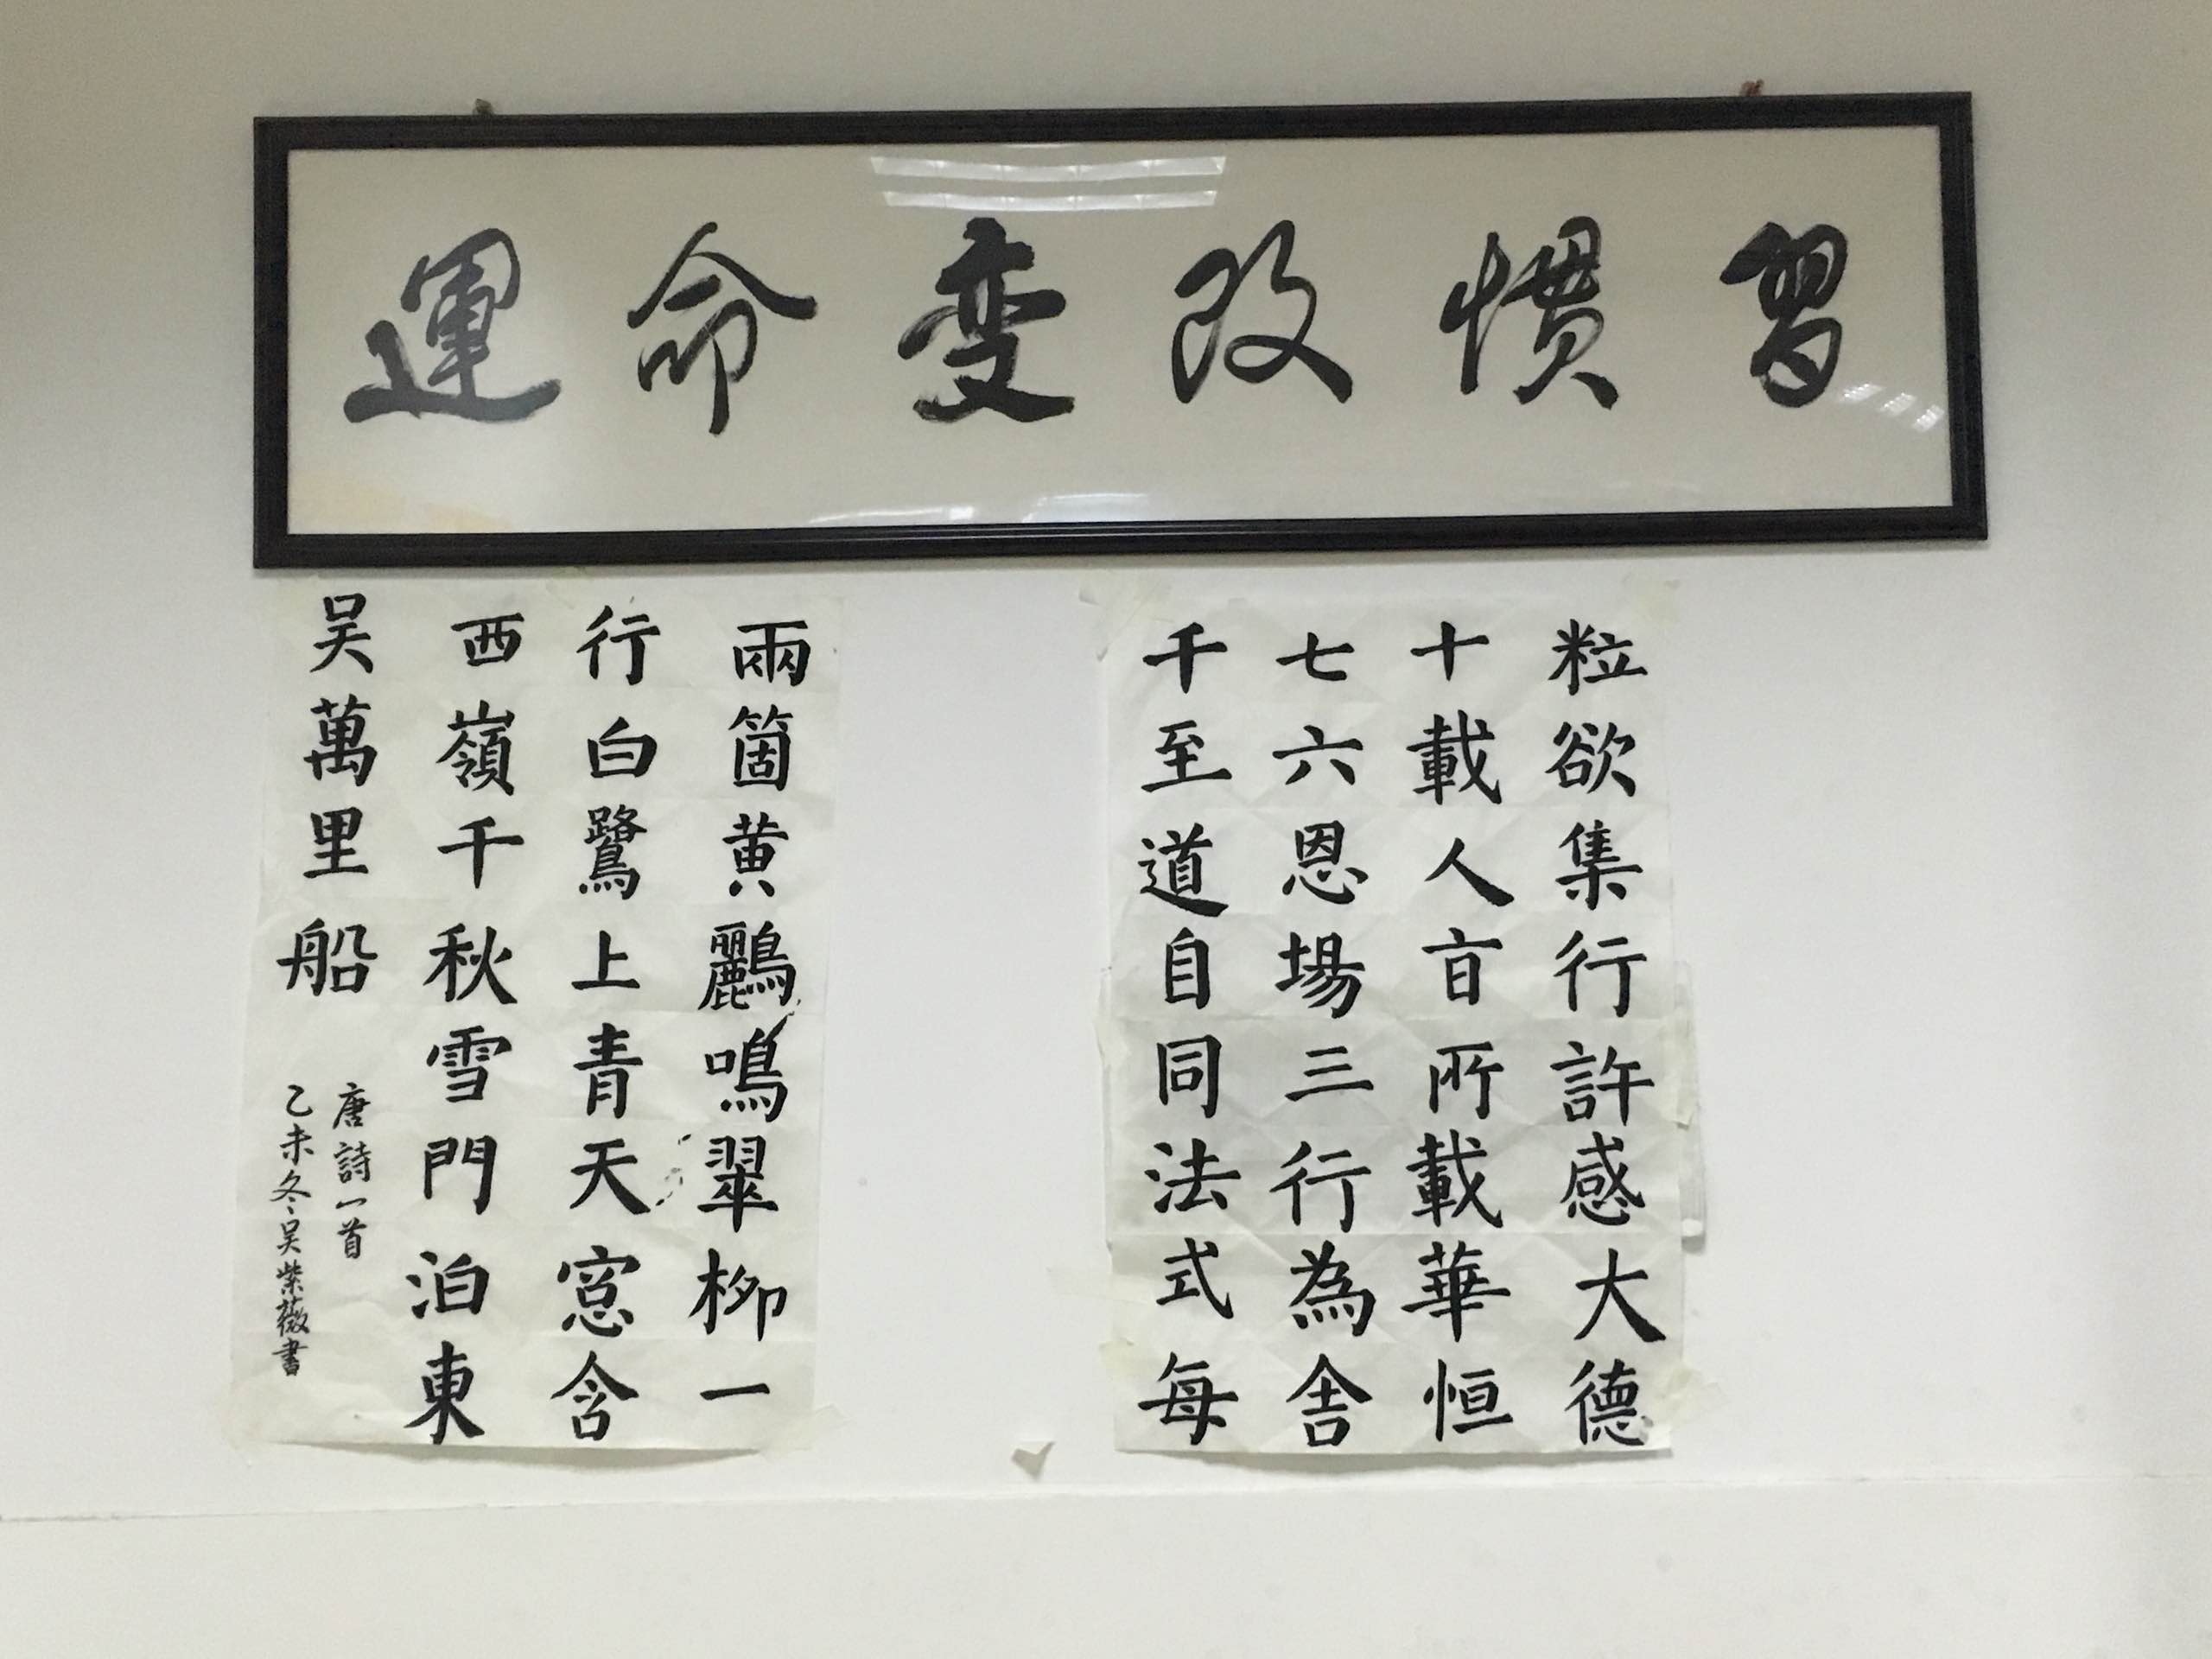 習慣改变命運
粒欲集行許感大德
十載人亩所載華恒
七六恩場三行為舍
千至道自同法式每
兩箇黄鸝鳴翠柳一
行白鷺上青天窓含
西嶺千秋雪門泊東
吴萬里船
唐詩一首
乙未冬吴紫薇書